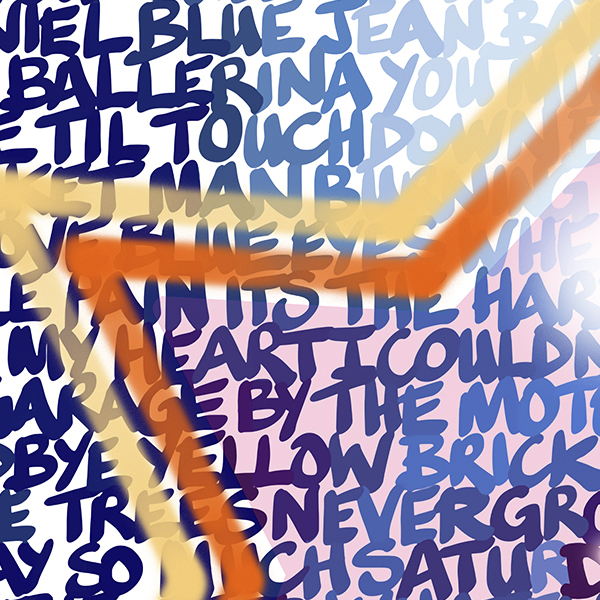 NIEL BLUE JEAN BA
BALLERINA YOU MU
E TIL TOUCHDOWN
KET MAN BURNING
OVE BLUE EYES WHE
LE PAIN IT'S THE HAR
MY HEART I COULDN
GARAGE BY THE MOTO
DBYE YELLOW BRICK
E TREES NEVER GRO
AY SO MUCH SATURD